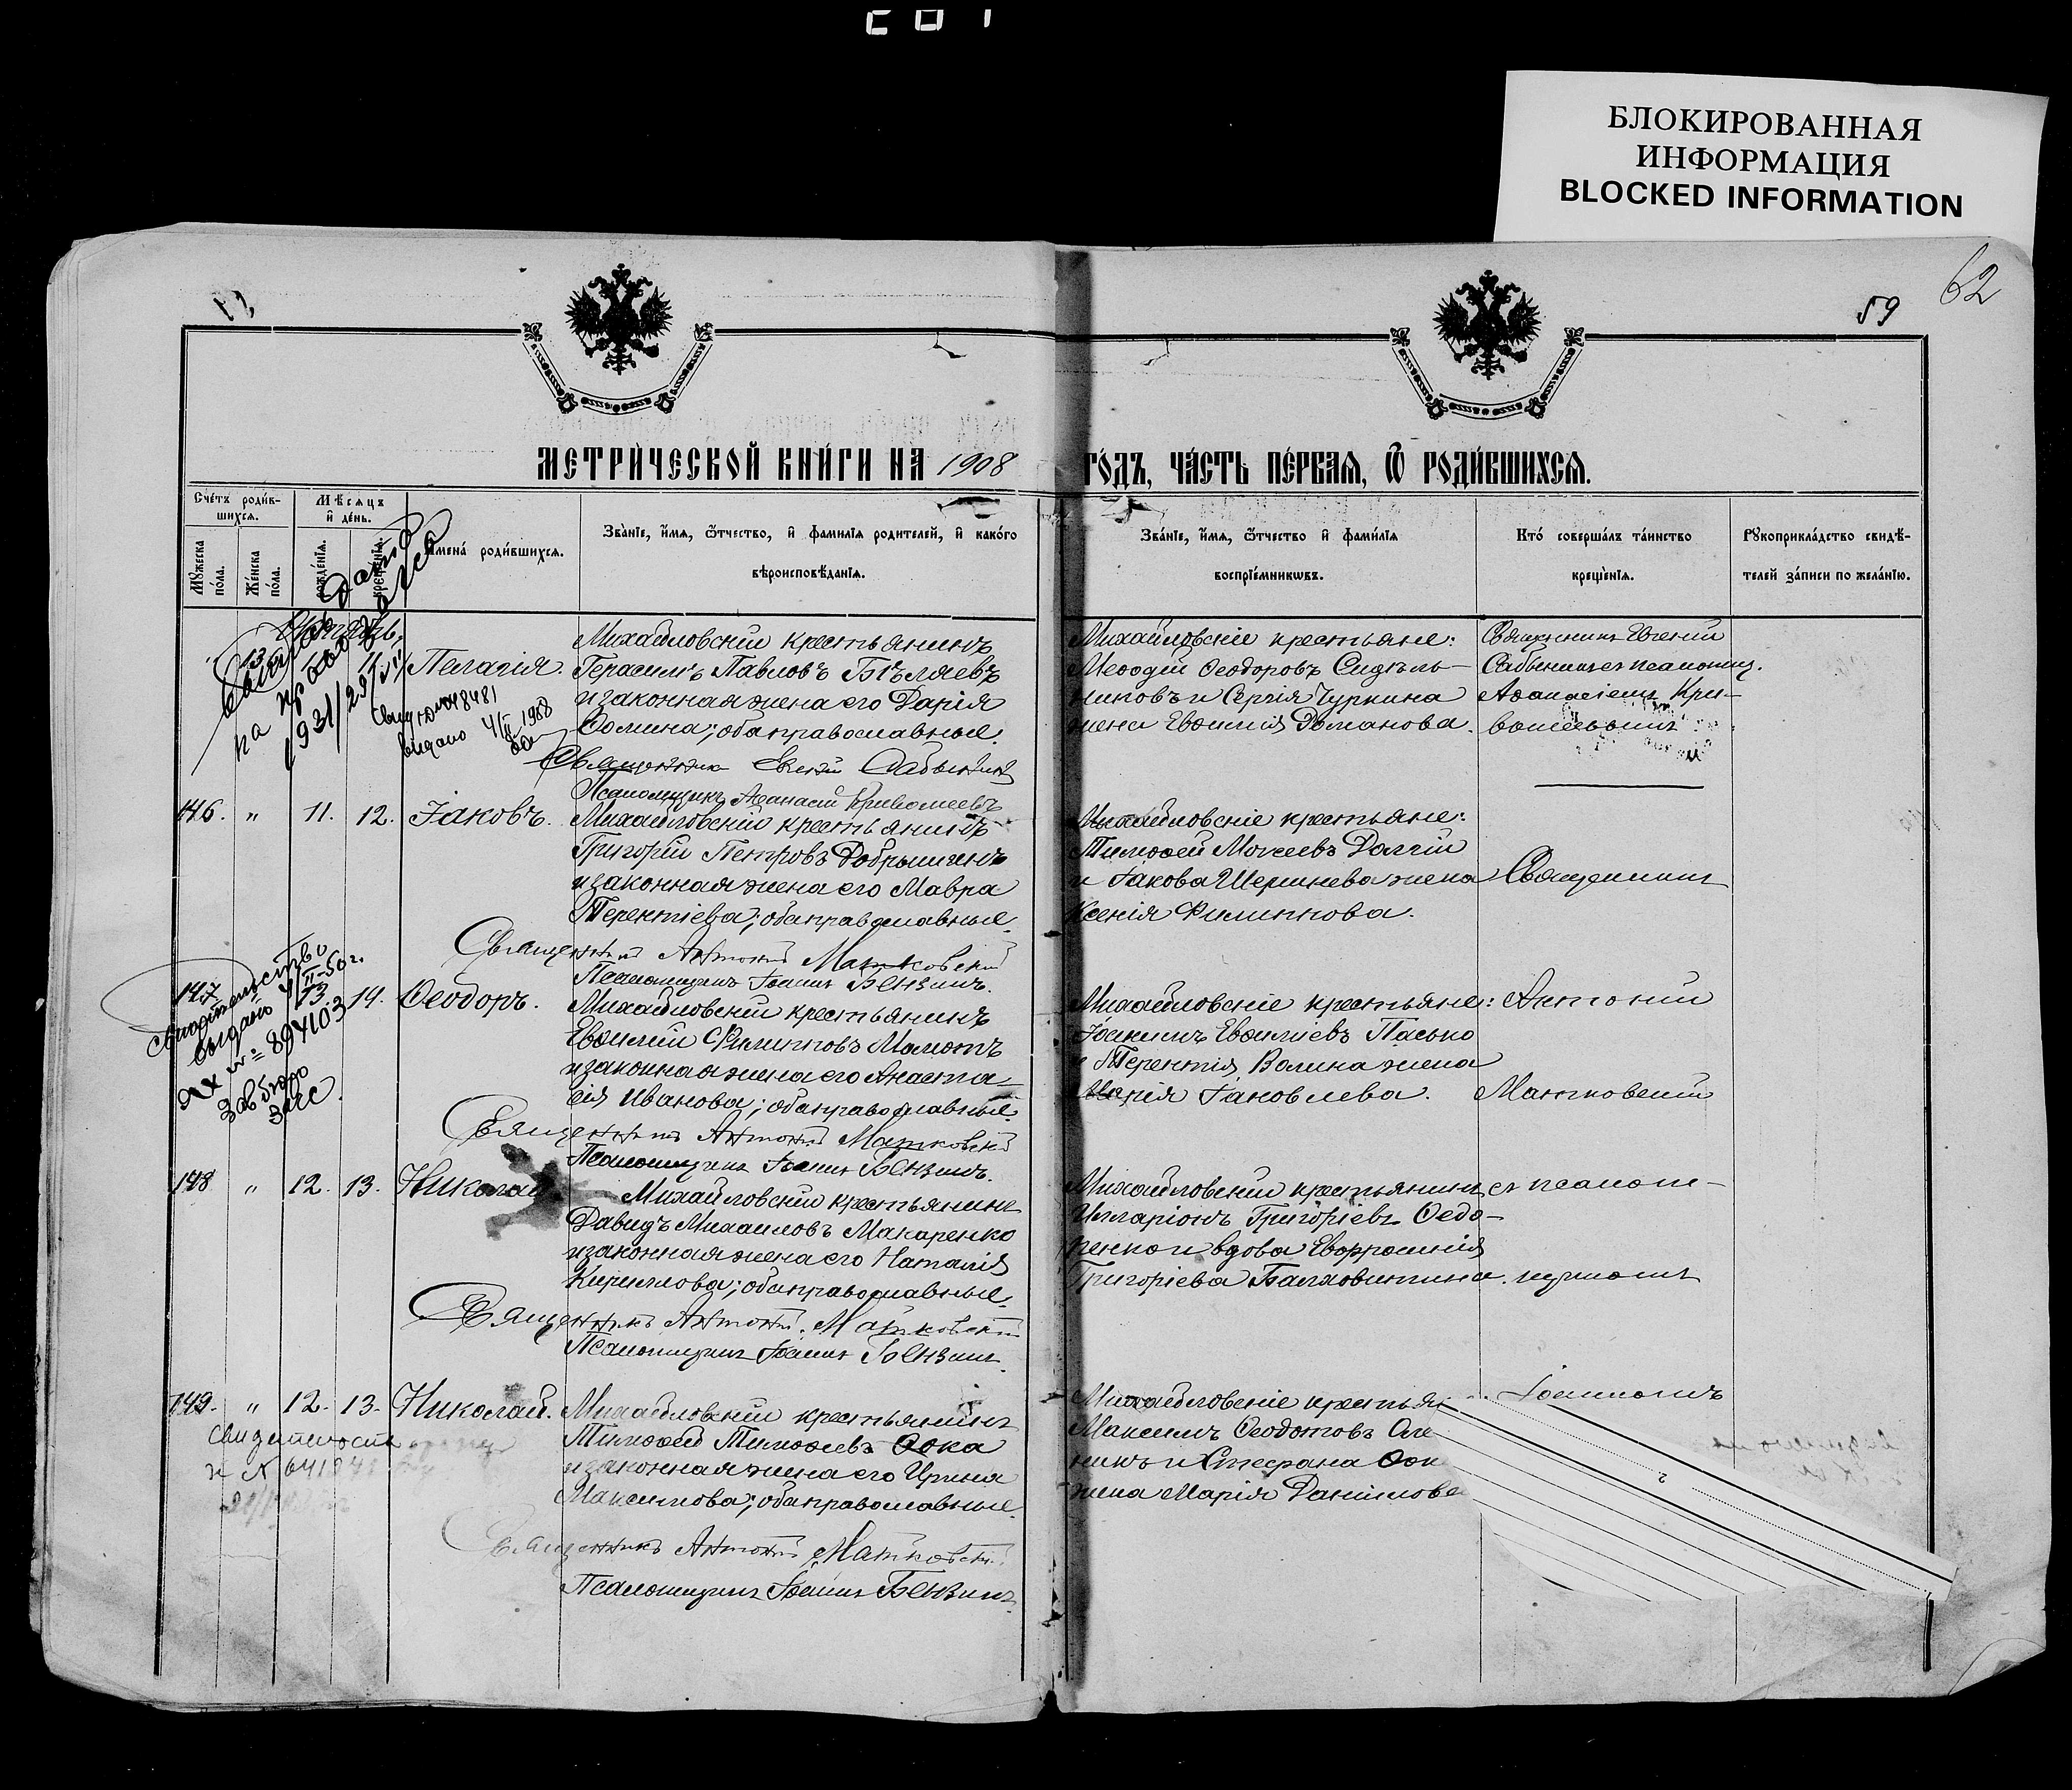 БЛОКИРОВАННАЯ
ИНФОРМАЦИЯ
BLOCKED INFORMATION
62
59
МЕТРИ́ЧЕСКОЙ КНИ́ГИ НА 1908 ГО́ДЪ, ЧА́СТЬ ПЕ́РВАѦ, Ѿ РОДИ́ВШИХСѦ.
Сче́тъ роди́в-
шихсѧ.
Мѣ́сѧцъ
и҆ де́нь.
Мꙋ́жеска
по́ла.
Же́нска
по́ла.
рожде́нїѧ.
креще́нїѧ.
Имена́ роди́вшихсѧ.
Зва́нїе, и҆́мѧ, ѻ҆́тчество, и҆ фами́лїѧ роди́телей, и҆ како́го
вѣроисповѣ́данїѧ.
Зва́нїе, и҆́мѧ, ѻ҆́тчество и҆ фами́лїѧ
воспрїе́мникѡвъ.
Кто́ соверша́лъ та́инство
креще́нїѧ.
Рꙋкоприкла́дство свидѣ́-
телей за́писи по жела́нїю.
на
1931/
выдано 4/II 1988
Пелагія.
Михайловскій крестьянинъ
Герасимъ Павловъ Бѣляевъ
и законная жена его Дарія
Ѳомина; оба православные.
Священникъ Евгеній Сабынинъ
Псаломщикъ Аѳанасій Кривошеевъ
Михайловскіе крестьяне:
Меѳодій Ѳеодоровъ Сидѣль-
никовъ и Сергія Чуркина
жена Евѳимія Романова.
Священникъ Евгеній
Сабынинъ съ псаломщ.
Аѳанасіемъ Кри-
вошеевымъ
146. " 11. 12. Іаковъ.
Михайловскій крестьянинъ
Григорій Петровъ Добрыгинъ
и законная жена его Мавра
Терентіева; оба православные.
Священникъ Антоній Матковскій
Псаломщикъ Іоаннъ Бензинъ.
Михайловскіе крестьяне:
Тимоѳей Моисеевъ Далгій
и Іакова Шершнева жена
Ксенія Филиппова.
Священникъ
147
свидетельство
выдано
№ 894103
Зав бюро
загс.
14. Ѳеодоръ.
Михайловскій крестьянинъ
Евѳимій Филипповъ Мамотъ
и законная жена его Анаста-
сія Иванова; оба православные.
Священникъ Антоній Матковскій
Псаломщикъ Іоаннъ Бензинъ.
Михайловскіе крестьяне:
Іоакимъ Евѳиміевъ Пасько
и Терентія Волика жена
Марія Іаковлева.
Антоній
Матковскій
148 " 12. 13. Николай
Михайловскій крестьянинъ
Давидъ Михаиловъ Макаренко
и законная жена его Наталія
Кириллова; оба православные.
Священникъ Антоній Матковскій
Псаломщикъ Іоаннъ Бензинъ.
Михайловскій крестьянинъ
Илларіонъ Григоріевъ Ѳедо-
ренко и вдова Евфросинія
Григоріева Балховитина.
съ псалом-
щикомъ
149. " 12. 13. Николай.
Свидетельств
Михайловскій крестьянинъ
Тимоѳей Тимоѳеевъ Ѳока
и законная жена его Ирина
Максимова; оба православные.
Священникъ Антоній Матковскій
Псаломщикъ Іоаннъ Бензинъ.
Михайловскіе крестья
Максимъ Ѳеодотовъ Оле
никъ и Стефана Ѳок
жена Марія Данилова
Іоанномъ